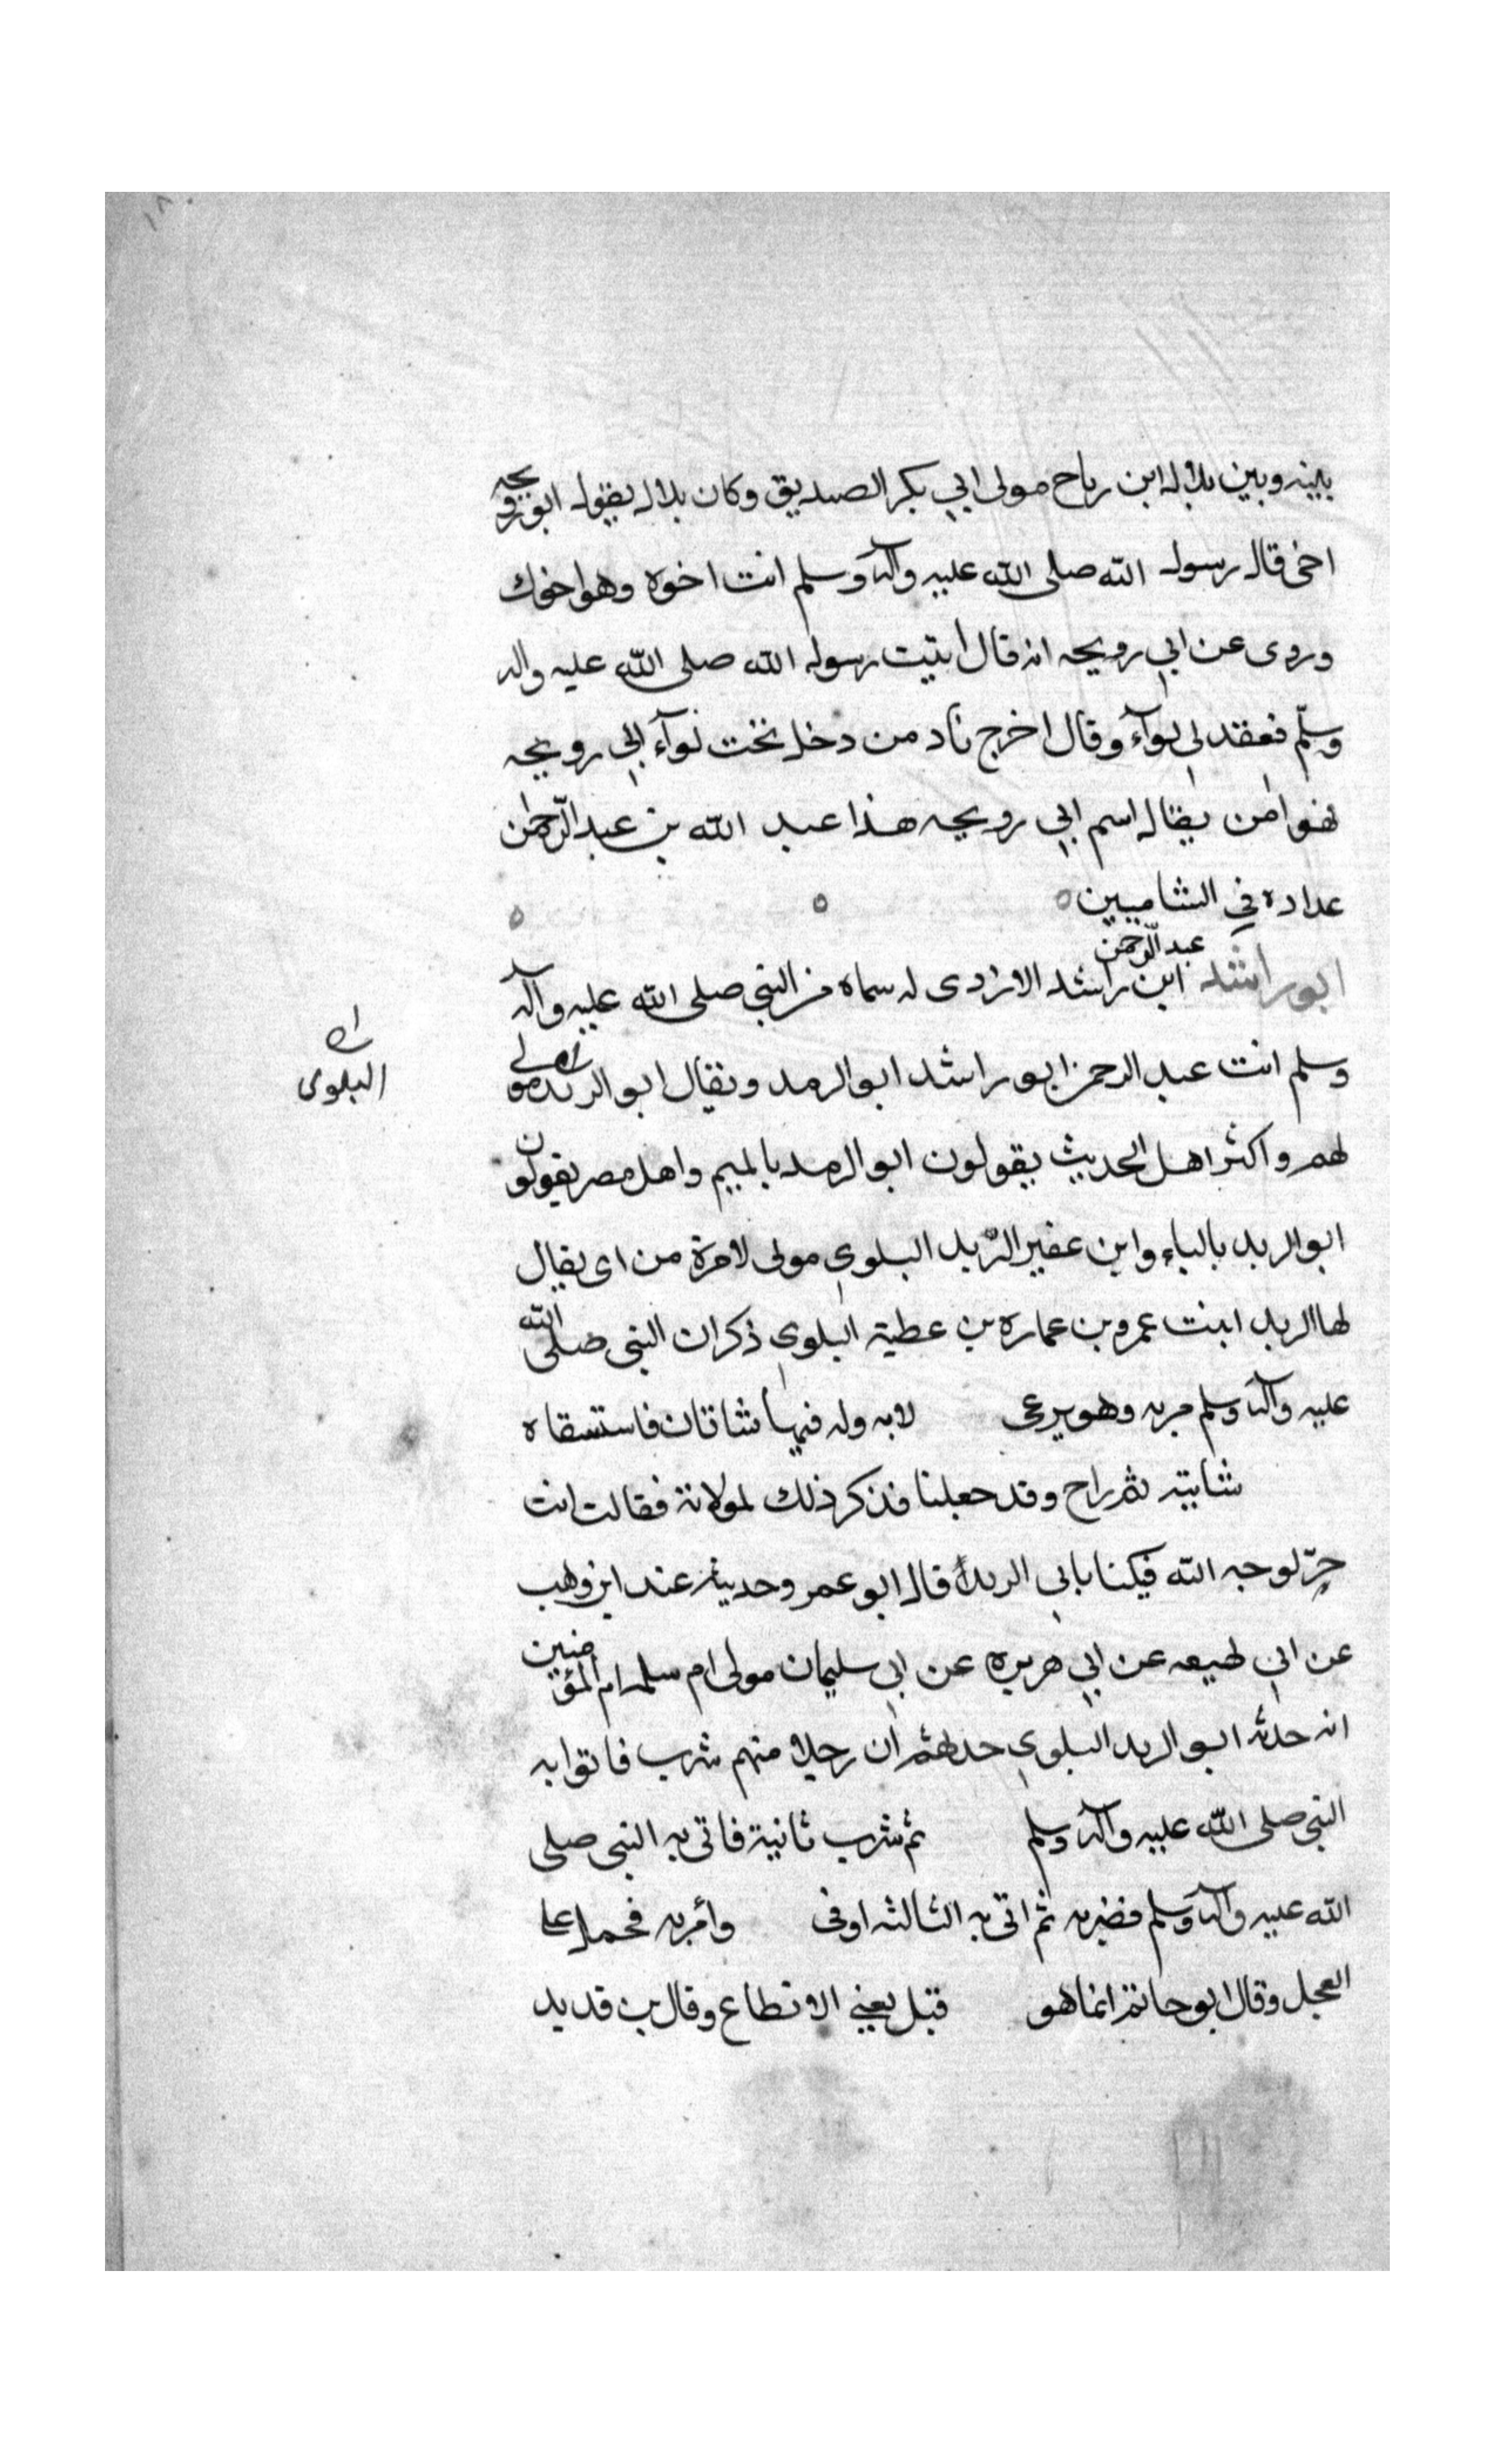 بينه وبين بلال ابن رباح مولى ابي بكر الصديق وكان بلال يقول ابو رويحه
اخى قال رسول الله صلى الله عليه وآله وسلم انت اخوه وهو اخوك
وروى عن ابي رويحه انه قال اتيت رسول الله صلى الله عليه واله
وسلم فعقد لى لوآء وقال اخرج ناد من دخل تحت لوآء ابي رويحه
فهو امن يقال اسم ابي رويحه هذا عبد الله بن عبد الرحمن
عداده في الشاميين
ابو راشد عبد الرحمن ابن راشد الازدى له سماه من النبي صلى الله عليه وآله
وسلم انت عبد الرحمن ابو راشد ابو الرمد ويقال ابو الربد مولى
البلوى
لهم واكثر اهل الحديث يقولون ابو الرمد بالميم واهل مصر يقولون
ابو الربد بالباء وابن عفير الربد البلوي مولى لامرة من اى يقال
لها الربد ابنت عمرو بن عماره بن عطية البلوي ذكر ان النبى صلى الله
عليه وآله وسلم مر به وهو يرعى لابه وله فيها شاتان فاستسقاه
شاتيه ثم راح وقد حعلنا فذكر ذلك لمولاتة فقالت انت
حرّ لوجه الله فيكنا بابى الربدا قال ابو عمر وحديثه عند ابن وهب
عن ابي لهيعه عن ابي هريره عن ابي سليمان مولى ام سلمه ام المؤمنين
انه حدثه ابو الربد البلوي حدلهثم ان رجلا منهم شرب فاتوا به
النبى صلى الله عليه وآله وسلم ثم شرب ثانية فاتى به النبى صلى
الله عليه وآله وسلم فضربه ثم اتى به الثالثه اوفى وأمر به فحمل على
العجل وقال ابو حاتم انما هو قبل يعني الانطاع وقال بن قديد